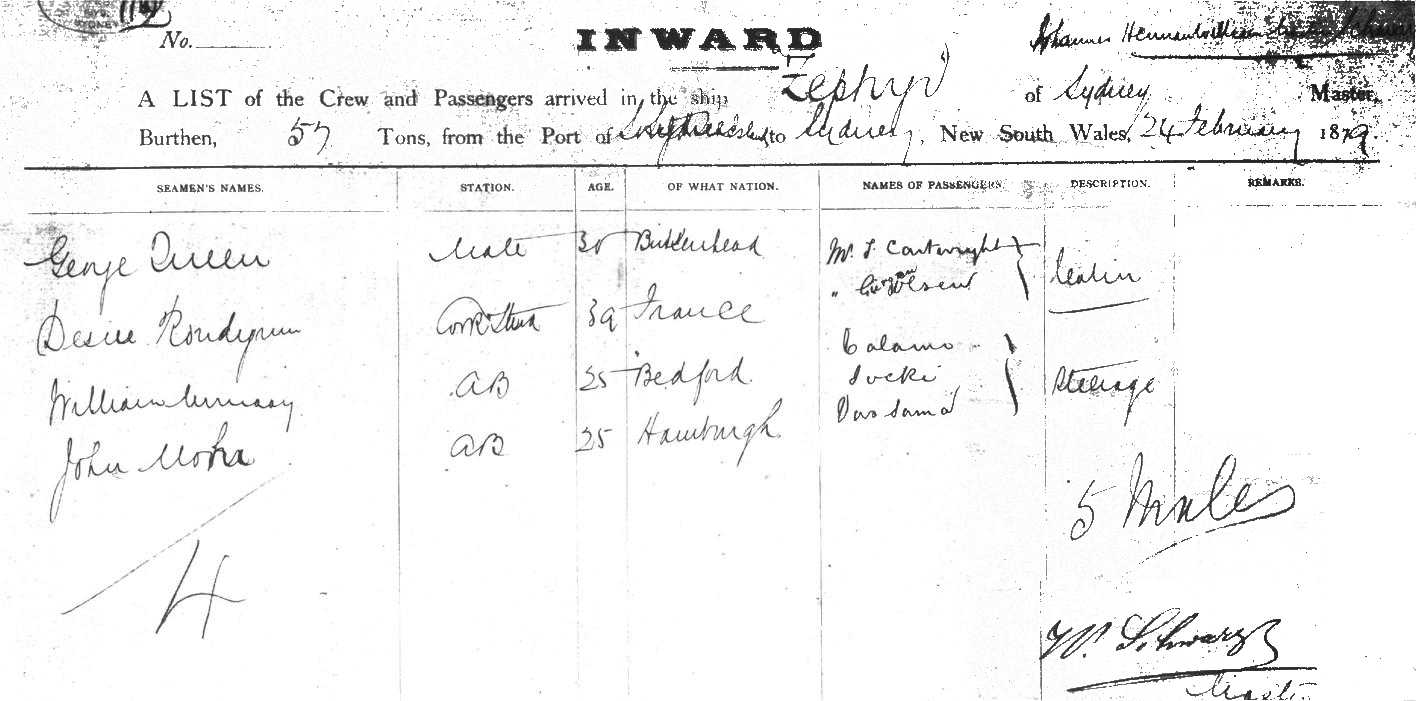 No.
INWARD
Johannes Herman William Schwarz
A LIST of the Crew and Passengers arrived in the ship Zephyr of Sydney Master,
Burthen, 57 Tons, from the Port of to Sydney, New South Wales, 24 February 1879.
SEAMEN'S NAMES. STATION. AGE. OF WHAT NATION. NAMES OF PASSENGERS. DESCRIPTION. REMARKS.
George Queen Mate 30 Birkenhead Mr. Cartwright Cabin
" Olsen
Desire France 39 Cook & Stewd
William AB 25 Bedford Calamo Steerage
John AB 25 Hamburgh
4
5 Males
W. Schwarz
Master